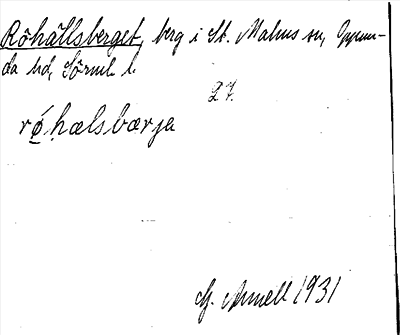 Röhällsberget, berg i St. Malms sn, Oppun-
da hd, Sörml l.
27.
rǿhælsbærja
G. Arnell 1931